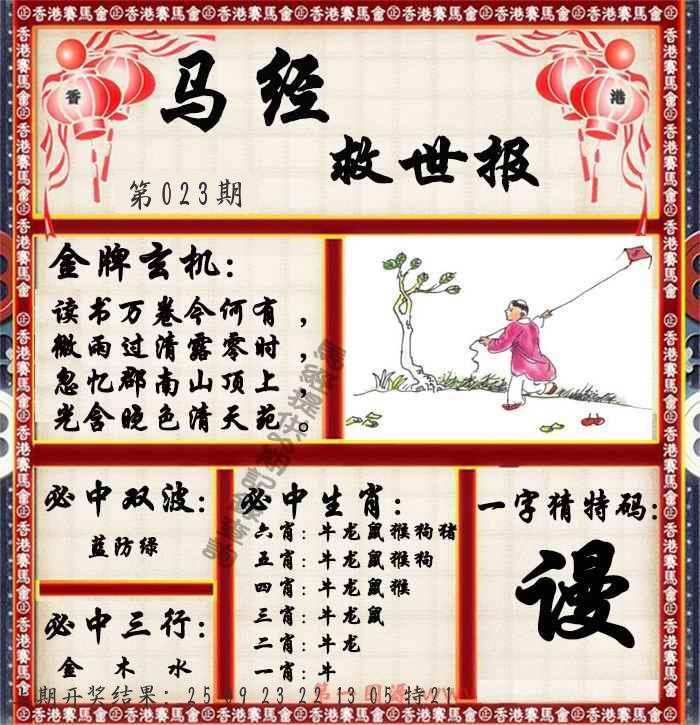 香 港
马经
救世报
第023期
金牌玄机:
读书万卷今何有，
微雨过清露零时，
忽忆郡南山顶上，
光含晚色清天苑。
必中双波:
蓝防绿
必中三行:
金 木 水
必中生肖:
六肖: 牛龙鼠猴狗猪
五肖: 牛龙鼠猴狗
四肖: 牛龙鼠猴
三肖: 牛龙鼠
二肖: 牛龙
一肖: 牛
一字猜特码:
谩
期开奖结果: 25 09 23 22 13 05 特21
香港賽馬會